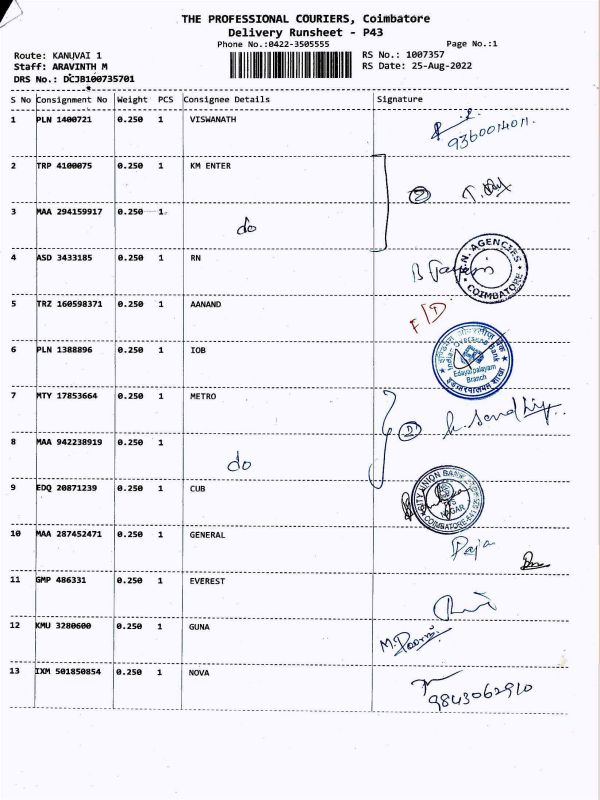 THE PROFESSIONAL COURIERS, Coimbatore
Delivery Runsheet - P43
Phone No.:0422-3505555 Page No.:1
Route: KANUVAI 1 RS No.: 1007357
Staff: ARAVINTH M RS Date: 25-Aug-2022
DRS No.: DCJB100735701
S No Consignment No Weight PCS Consignee Details Signature
1 PLN 1400721 0.250 1 VISWANATH
9360014011.
2 TRP 4100075 0.250 1 KM ENTER
2
3 MAA 294159917 0.250 1
do
4 ASD 3433185 0.250 1 RN
R.N. AGENCIES
COIMBATORE
5 TRZ 160598371 0.250 1 AANAND
F/D
6 PLN 1388896 0.250 1 IOB
Indian Overseas Bank
Edayarpalayam
Branch
7 MTY 17853664 0.250 1 METRO
2
8 MAA 942238919 0.250 1
do
9 EDQ 20871239 0.250 1 CUB
CITY UNION BANK
NAGAR
COIMBATORE-641 025
10 MAA 287452471 0.250 1 GENERAL
Raja
11 GMP 486331 0.250 1 EVEREST
12 KMU 3280600 0.250 1 GUNA
13 IXM 501850854 0.250 1 NOVA
9843062910